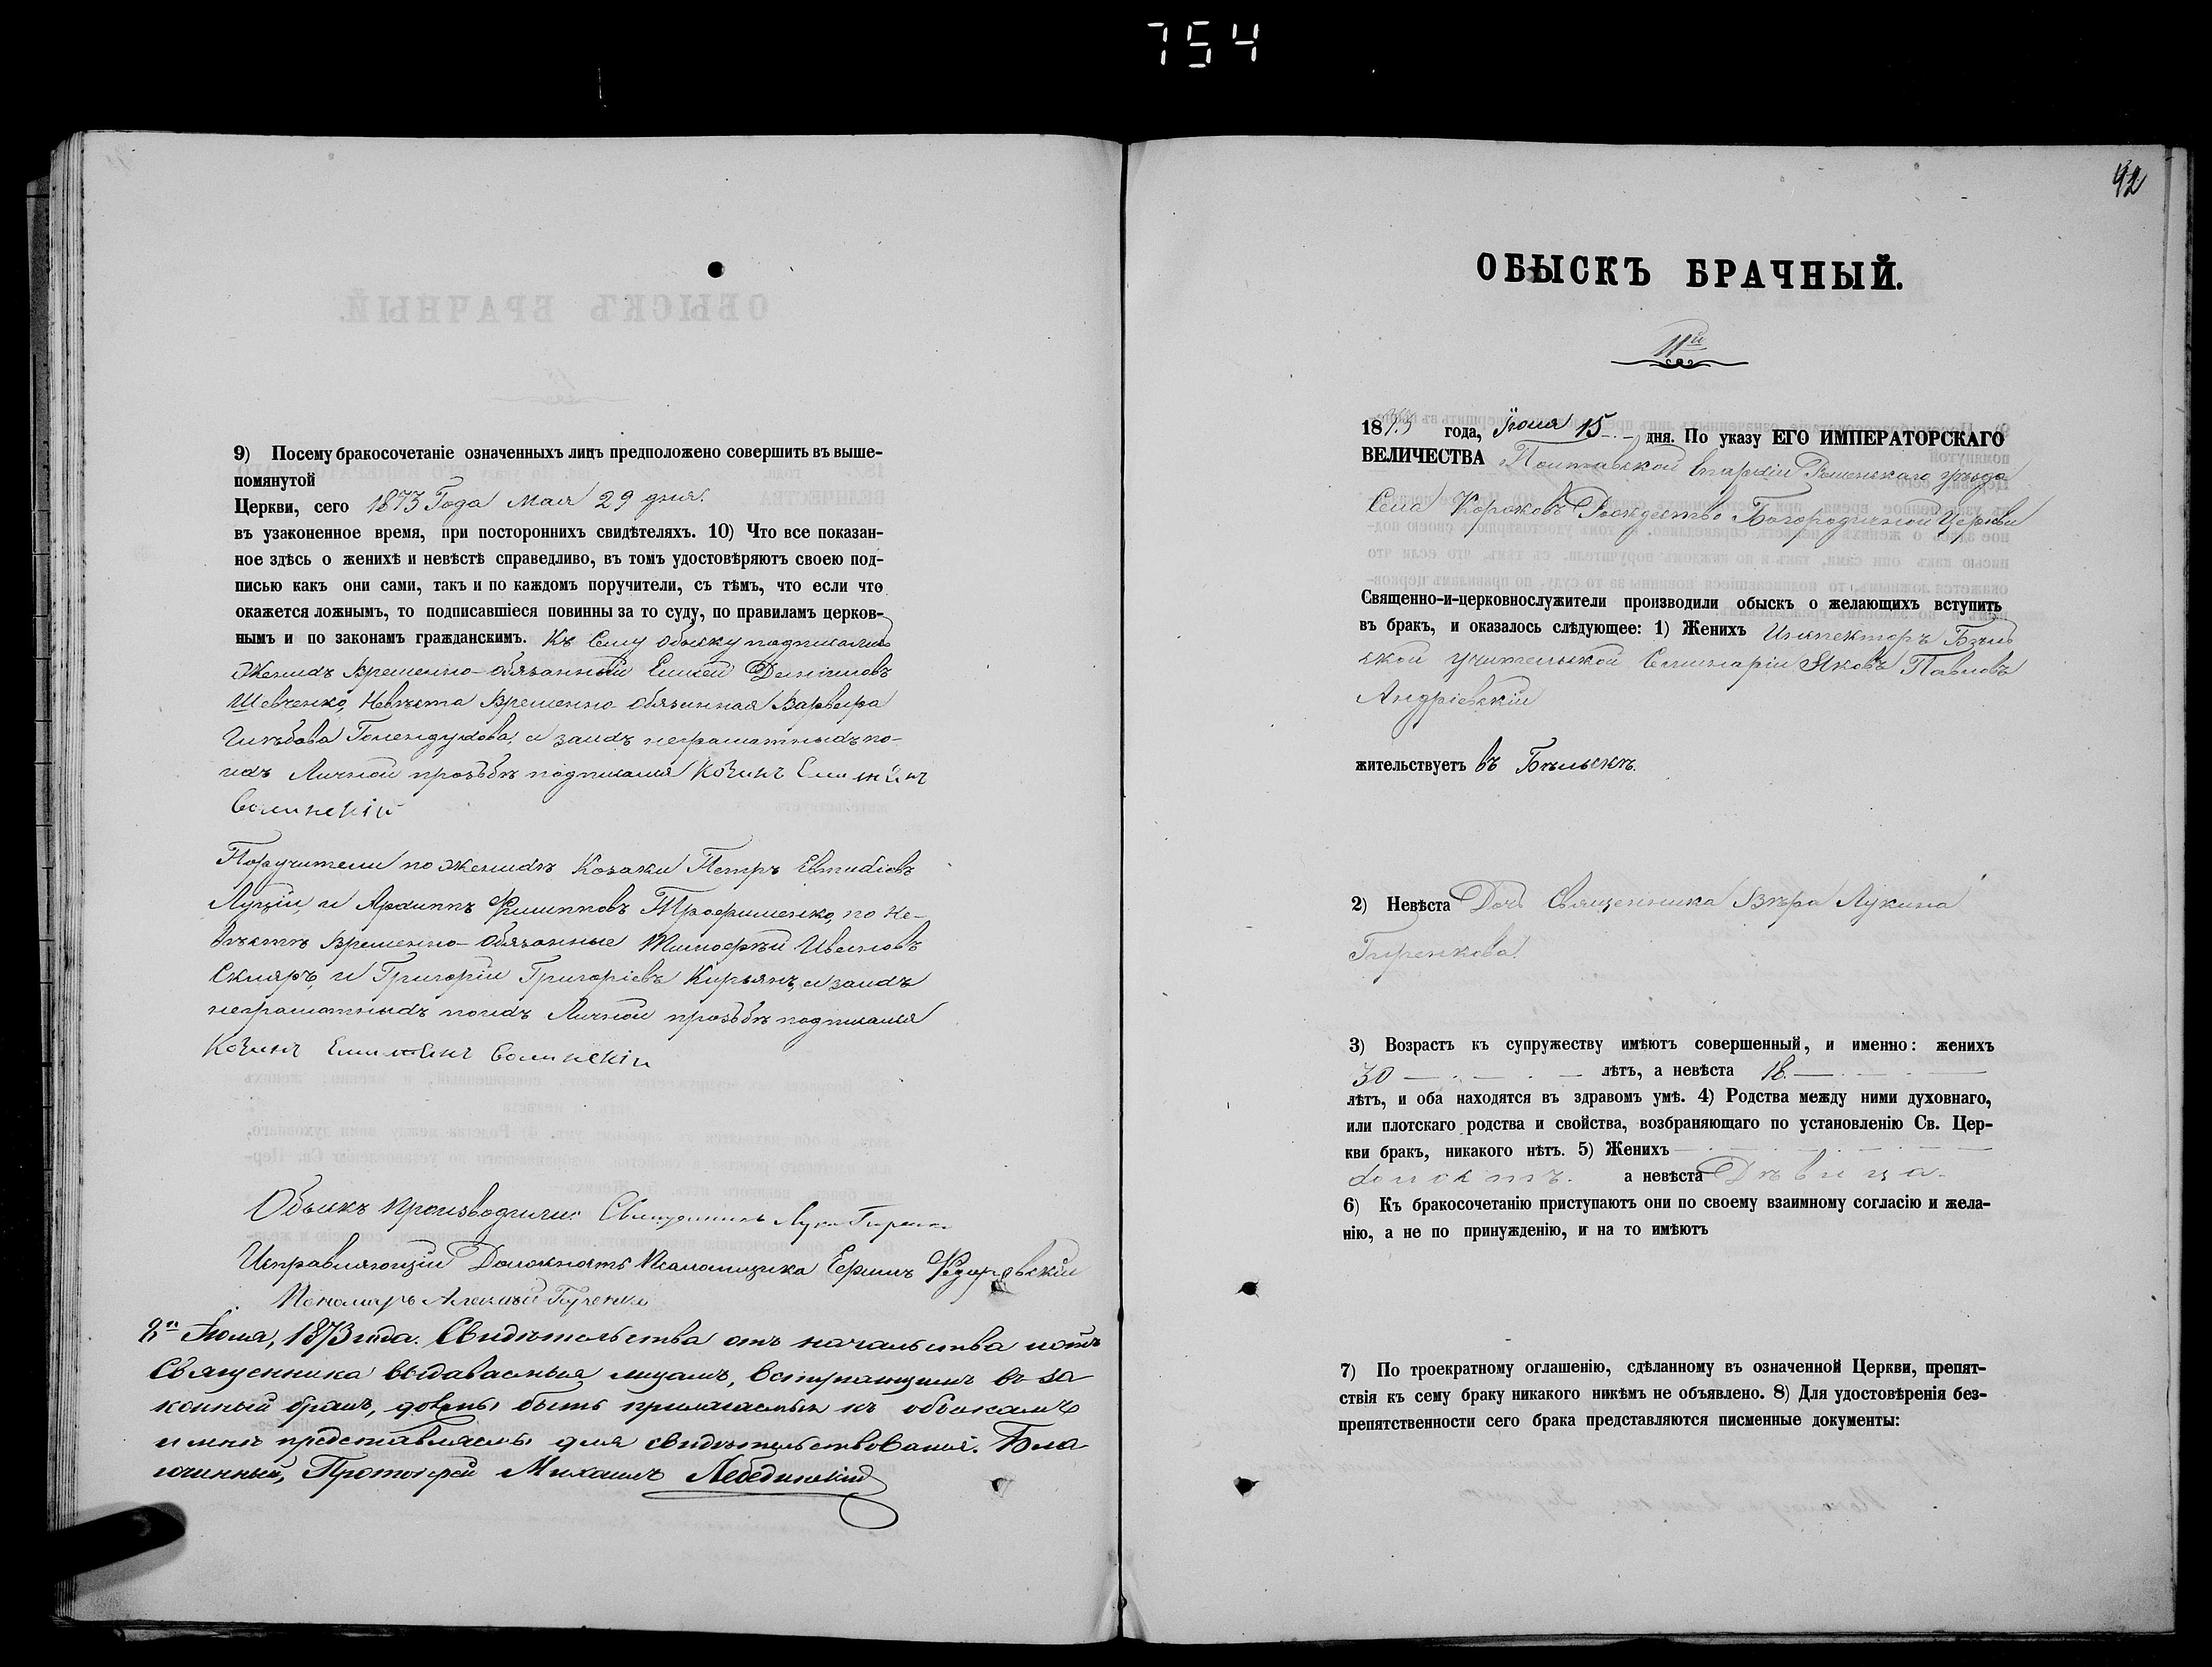 754
9) Посему бракосочетаніе означенныхъ лицъ предположено совершить въ выше-
помянутой
Церкви, сего 1873 Года Мая 29 дня.
въ узаконенное время, при постороннихъ свидѣтеляхъ. 10) Что все показан-
ное здѣсь о женихѣ и невѣстѣ справедливо, въ томъ удостовѣряютъ своею под-
писью какъ они сами, такъ и по каждомъ поручители, съ тѣмъ, что если что
окажется ложнымъ, то подписавшіеся повинны за то суду, по правиламъ церков-
нымъ и по законамъ гражданскимъ. Къ Сему обыску подписались
Женихъ Временно-обязанный
Шевченко, Невѣста Временно обязанная Варвара
и за нихъ неграмотныхъ по
ихъ Личной прозьбѣ подписался
Поручители по Женихѣ Козаки Петръ Евтиѳіевъ
и Архиппъ Филипповъ Трофименко, по Не-
вѣстѣ Временно-Обязанные Тимофей Ивановъ
Скляръ, и Григорій Григоріевъ Кирьянъ, и за нихъ
неграмотныхъ по ихъ Личной прозьбѣ подписался
Обыскъ производили: Священникъ Лука
Исправляющій Должность Псаломщика
Пономарь Алексѣй
Іюля, 1873 года. Свидѣтельства отъ начальства и отъ
Священника выдаваемыя лицамъ, вступающимъ въ за
конный бракъ, должны быть прилагаемы къ обыскамъ
и мнѣ представляемы для свидѣтельствованія. Бла
гочинный, Протоіерей Михаилъ Лебединскій
92
ОБЫСКЪ БРАЧНЫЙ.
11й
1873 года, Іюня 15 дня. По указу ЕГО ИМПЕРАТОРСКАГО
ВЕЛИЧЕСТВА Полтавской Епархіи Роменскаго уѣзда
Села Коровковъ Рождество Богородичной Церкви
Священно-и-церковнослужители производили обыскъ о желающихъ вступить
въ бракъ, и оказалось слѣдующее: 1) Женихъ Инспекторъ Бѣль
ской учительской Семинаріи Яковъ Павловъ
Андріевскій
жительствуетъ въ Бѣльскѣ.
2) Невѣста Дочь Священника Вѣра Лукина
Гиренкова.
3) Возрастъ къ супружеству имѣютъ совершенный, и именно: женихъ
30 лѣтъ, а невѣста 18.
лѣтъ, и оба находятся въ здравомъ умѣ. 4) Родства между ними духовнаго,
или плотскаго родства и свойства, возбраняющаго по установленію Св. Цер-
кви бракъ, никакого нѣтъ. 5) Женихъ
холостъ. а невѣста Дѣвица.
6) Къ бракосочетанію приступаютъ они по своему взаимному согласію и жела-
нію, а не по принужденію, и на то имѣютъ
7) По троекратному оглашенію, сдѣланному въ означенной Церкви, препят-
ствія къ сему браку никакого никѣмъ не объявлено. 8) Для удостовѣренія без-
препятственности сего брака представляются писменные документы: